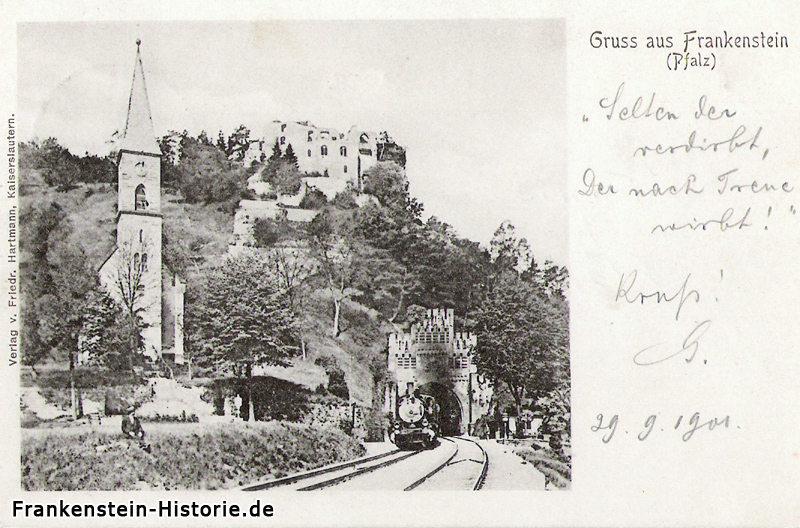 Gruss aus Frankenstein
(Pfalz)
„Selten der
verdirbt,
Der nach Treue
wirbt!"
Kruß!
G.
29.9.1901.
Verlag v. Friedr. Hartmann, Kaiserslautern.
Frankenstein-Historie.de